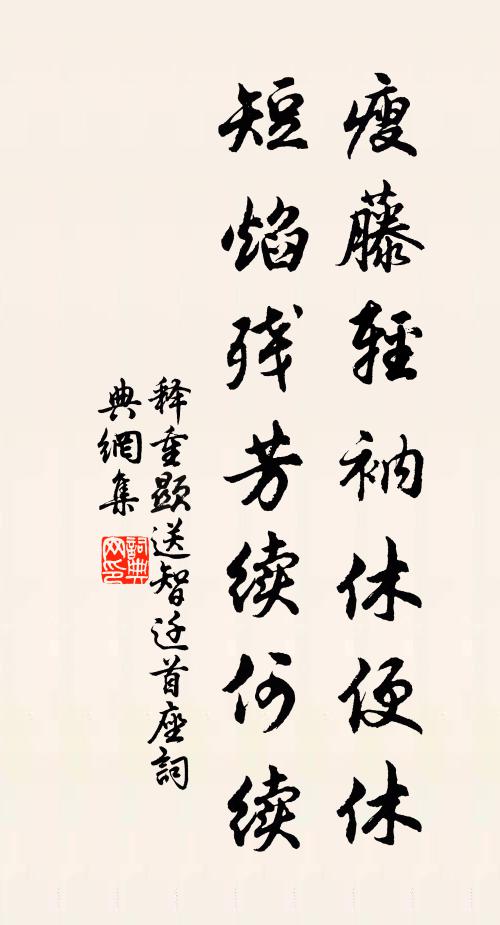 瘦藤輕衲休便休
短焰残芳续何续
释重顯送智迁首座詞
典網集
詞典网印